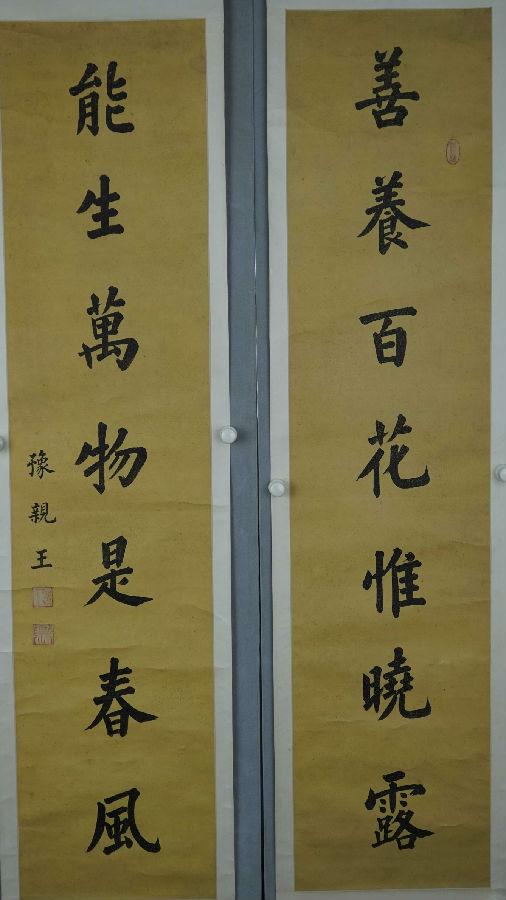 善養百花惟曉露
能生萬物是春風
豫親王